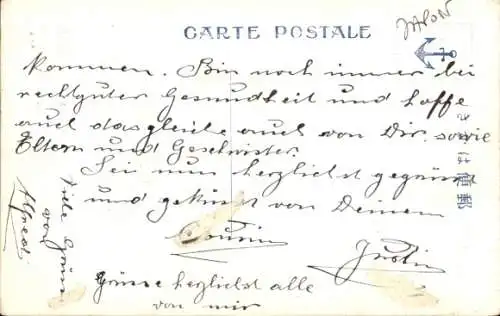 CARTE POSTALE
JAPON
kommen. Bin noch immer bei
recht guter Gesundheit und hoffe
auch das gleiche auch von Dir, sowie
Eltern und Geschwister.
Sei nun herzlichst gegrüsst
und geküsst von Deinem
Cousin
Grüsse herzlichst alle
von mir
Viele Grüsse
von
Alfred
きがは便郵